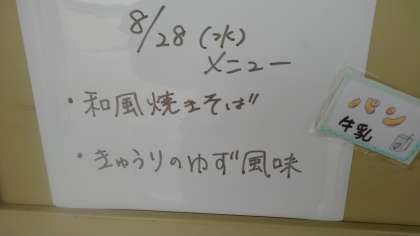 8/28 (水)
メニュー
・和風焼きそば
・きゅうりのゆず風味
パン
牛乳